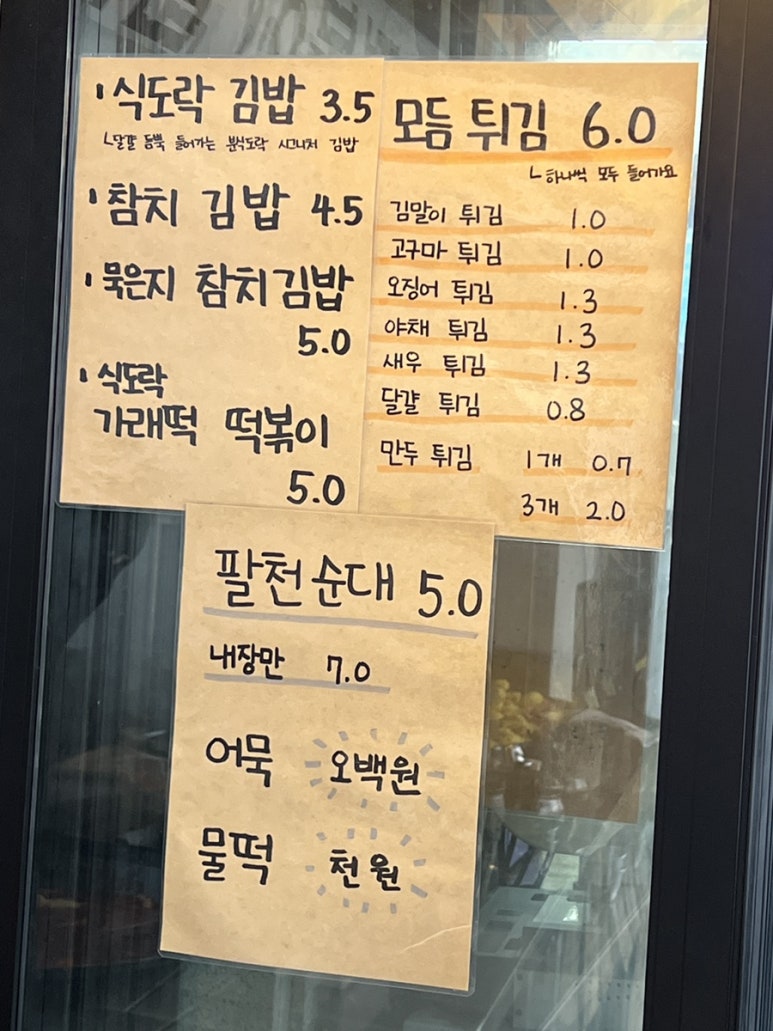 식도락 김밥 3.5
ㄴ달걀 듬뿍 들어가는 분식도락 시그니처 김밥
참치 김밥 4.5
묵은지 참치김밥
5.0
식도락
가래떡 떡볶이
5.0
모듬 튀김 6.0
ㄴ하나씩 모두 들어가요
김말이 튀김 1.0
고구마 튀김 1.0
오징어 튀김 1.3
야채 튀김 1.3
새우 튀김 1.3
달걀 튀김 0.8
만두 튀김 1개 0.7
3개 2.0
팔천순대 5.0
내장만 7.0
어묵 오백원
물떡 천원